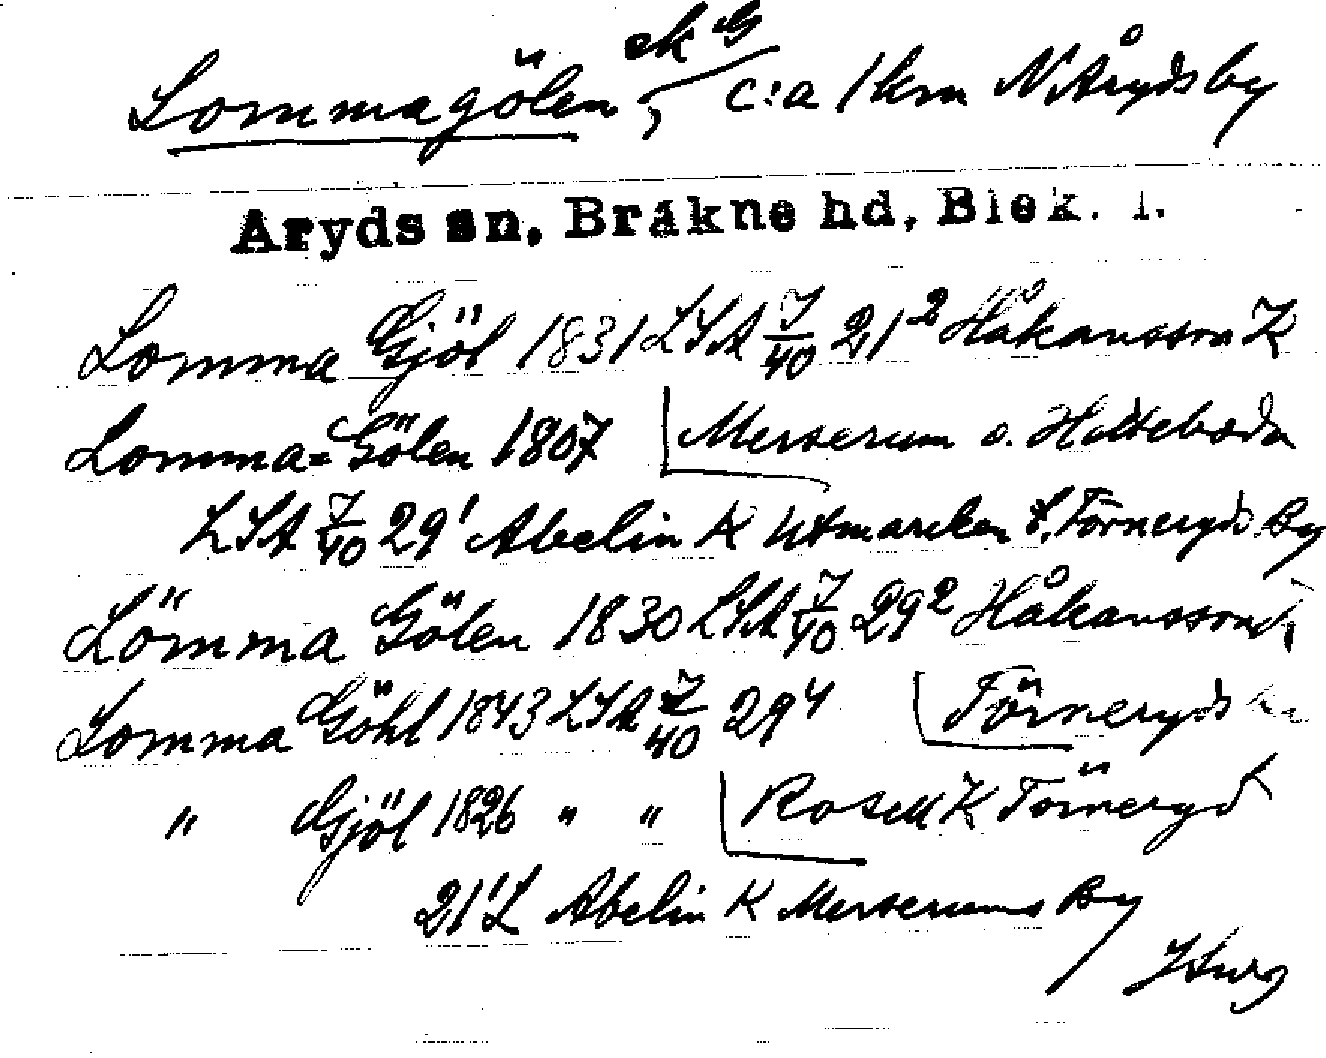 Lommagölen, ek G c:a 1 km N Åryds by
Aryds sn, Bräkne hd, Blek. l.
Lomma Gjöl 1831 LSA 7/40 21² Håkansson K
Lomma=Gölen 1807 Merserum o. Hilteboda
LSA 7/40 29¹ Abelin K Utmarcken t. Törneryds By
Lömma Gölen 1830 LSA 7/40 29² Håkansson K
Lomma Göhl 1843 LSA 7/40 29⁴ Törneryds
" Gjöl 1826 " " Rosell K Törneryd
21¹ L Abelin K Merserums By